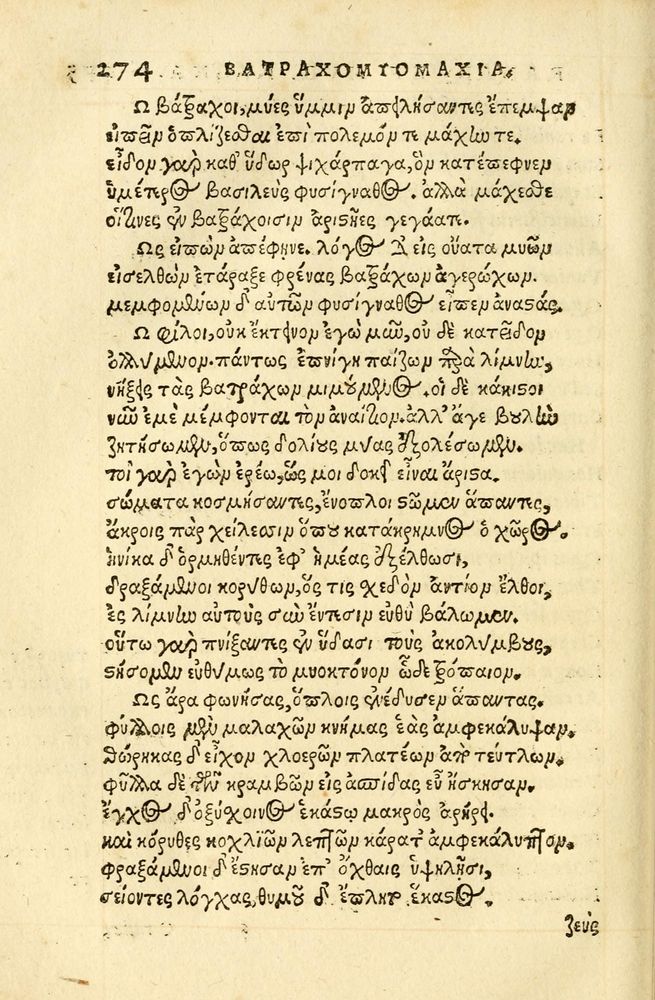 274 ΒΑΤΡΑΧΟΜΥΟΜΑΧΙΑ.
Ω βάτραχοι, μύες ὔμμιν ἀπειλήσαντες ἔπεμψαν
εἰπεῖν ὁπλίζεσθαι ἐπὶ πολεμόν τε μάχω τε.
εἶδον γὰρ καθ' ὕδωρ ψιχάρπαγα, ὃν κατέπεφνεν
ὑμέτερος βασιλεὺς φυσίγναθος. ἀλλὰ μάχεσθε
οἵτινες ἐν βατράχοισιν ἀριστῆες γεγάατε.
Ως εἰπὼν ἀπέφηνε. λόγος δ' εἰς οὔατα μυῶν
εἰσελθὼν ἐτάραξε φρένας βατράχων ἀγερώχων.
μεμφομένων δ' αὐτῶν φυσίγναθος εἶπεν ἀναστάς.
Ω φίλοι, οὐκ ἔκτεινον ἐγὼ μῦν, οὐ δὲ κατεῖδον
ὀλλύμενον. πάντως ἐπνίγη παίζων παρὰ λίμνην,
νήξεις τὰς βατράχων μιμούμενος. οἱ δὲ κάκιστοι
νῦν ἐμὲ μέμφονται τὸν ἀναίτιον. ἀλλ' ἄγε βουλὴν
ζητήσωμεν, ὅπως δολίους μύας ἐξολέσωμεν.
τοὶ γὰρ ἐγὼν ἐρέω, ὥς μοι δοκεῖ εἶναι ἄριστα.
σώματα κοσμήσαντες, ἔνοπλοι στῶμεν ἅπαντες,
ἄκροις πὰρ χείλεσσιν ὅπου κατάκρημνος ὁ χῶρος.
ἡνίκα δ' ὁρμηθέντες ἐφ' ἡμέας ἐξέλθωσι,
δραξάμενοι κορύθων, ὅς τις σχεδὸν ἀντίον ἔλθοι,
ἐς λίμνην αὐτοὺς σὺν ἔντεσιν εὐθὺ βάλωμεν.
οὕτω γὰρ πνίξαντες ἐν ὕδασι τοὺς ἀκολύμβους,
στήσομεν εὐθύμως τὸ μυοκτόνον ὧδε τρόπαιον.
Ως ἄρα φωνήσας, ὅπλοις ἐνέδυσεν ἅπαντας.
φύλλοις μὲν μαλαχῶν κνήμας ἑὰς ἀμφεκάλυψαν.
θώρηκας δ' εἶχον χλοερῶν πλατέων ἀπὸ τεύτλων.
φύλλα δὲ τῶν κραμβῶν εἰς ἀσπίδας εὖ ἤσκησαν.
ἔγχος δ' ὀξύσχοινος ἑκάστῳ μακρὸς ἀρήρει.
καὶ κόρυθες κοχλιῶν λεπτῶν κάρατ' ἀμφεκάλυπτον.
φραξάμενοι δ' ἔστησαν ἐπ' ὄχθαις ὑψηλῇσι,
σείοντες λόγχας, θυμοῦ δ' ἔπλητο ἕκαστος.
Ζεὺς